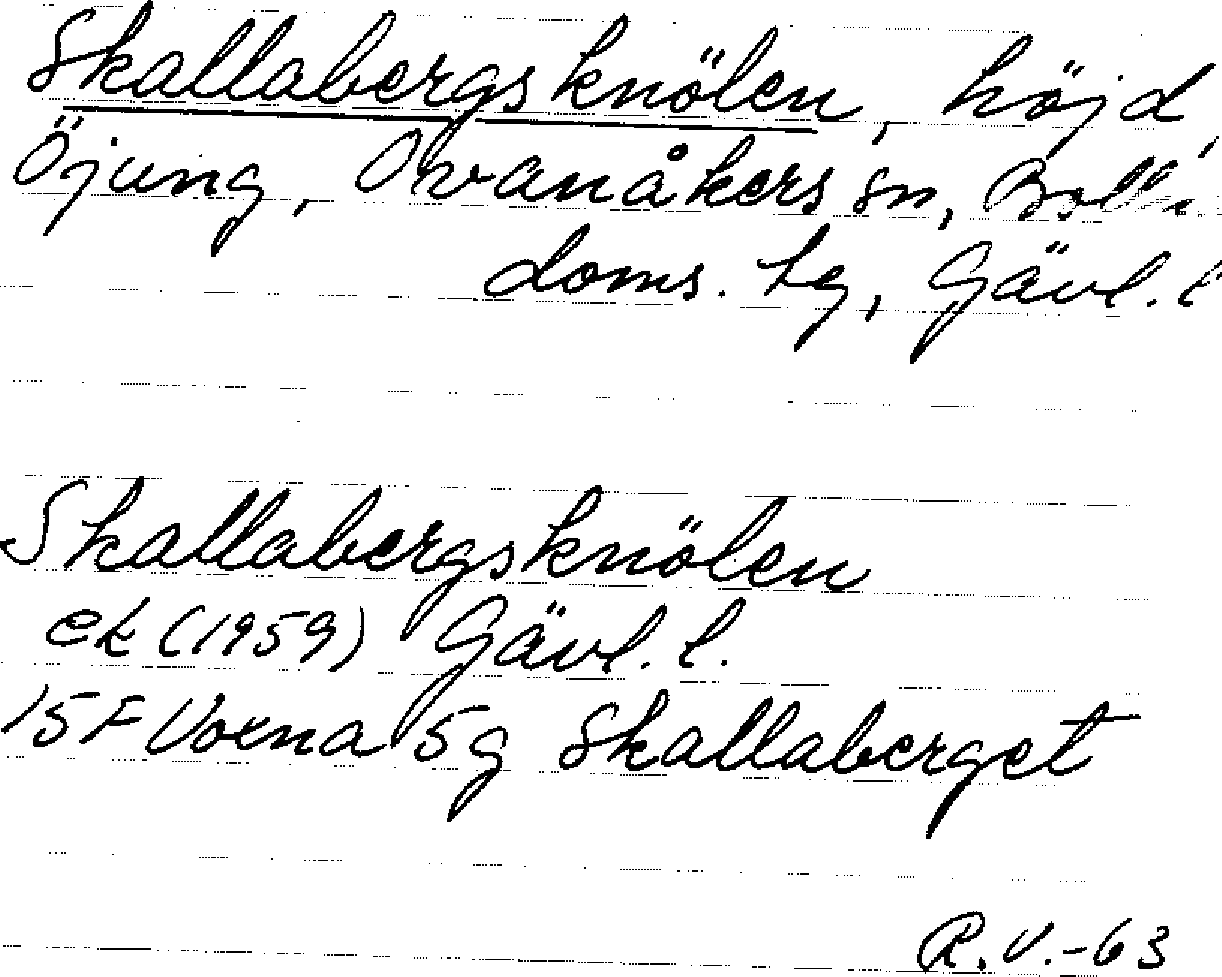 Skallabergsknölen, höjd,
Öjung, Ovanåkers sn,
doms. tg, Gävl. l
Skallabergsknölen
ek (1959) Gävl. l.
15F Voxna 5g Skallaberget
R.V.-63